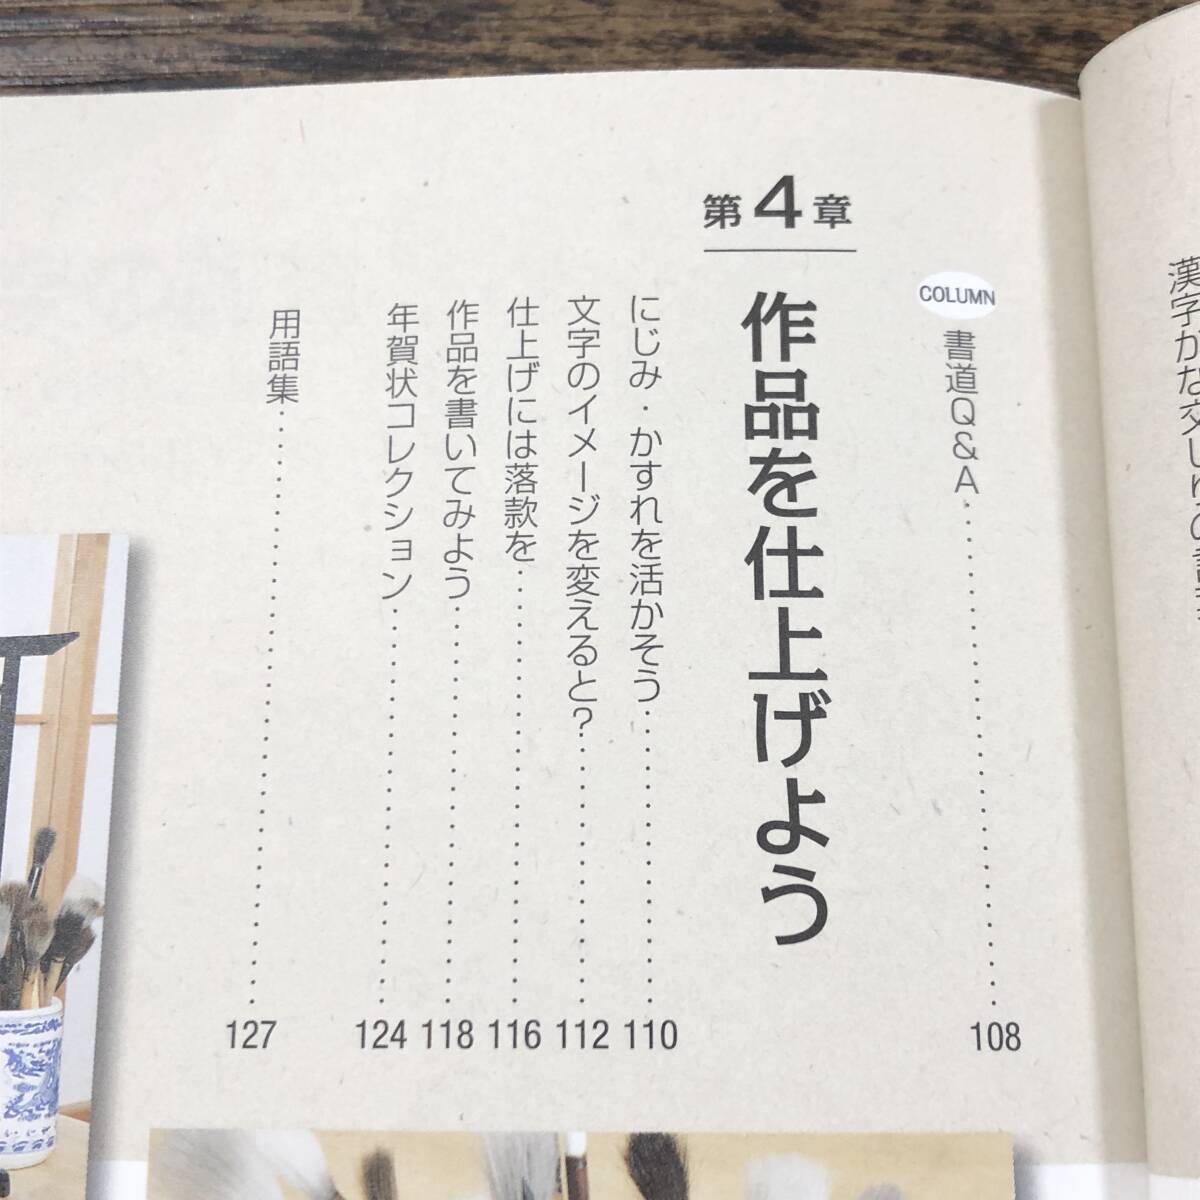 漢字かな交じりの
COLUMN
書道Q&A 108
第4章
作品を仕上げよう
にじみ・かすれを活かそう 110
文字のイメージを変えると? 112
仕上げには落款を 116
作品を書いてみよう 118
年賀状コレクション 124
用語集 127